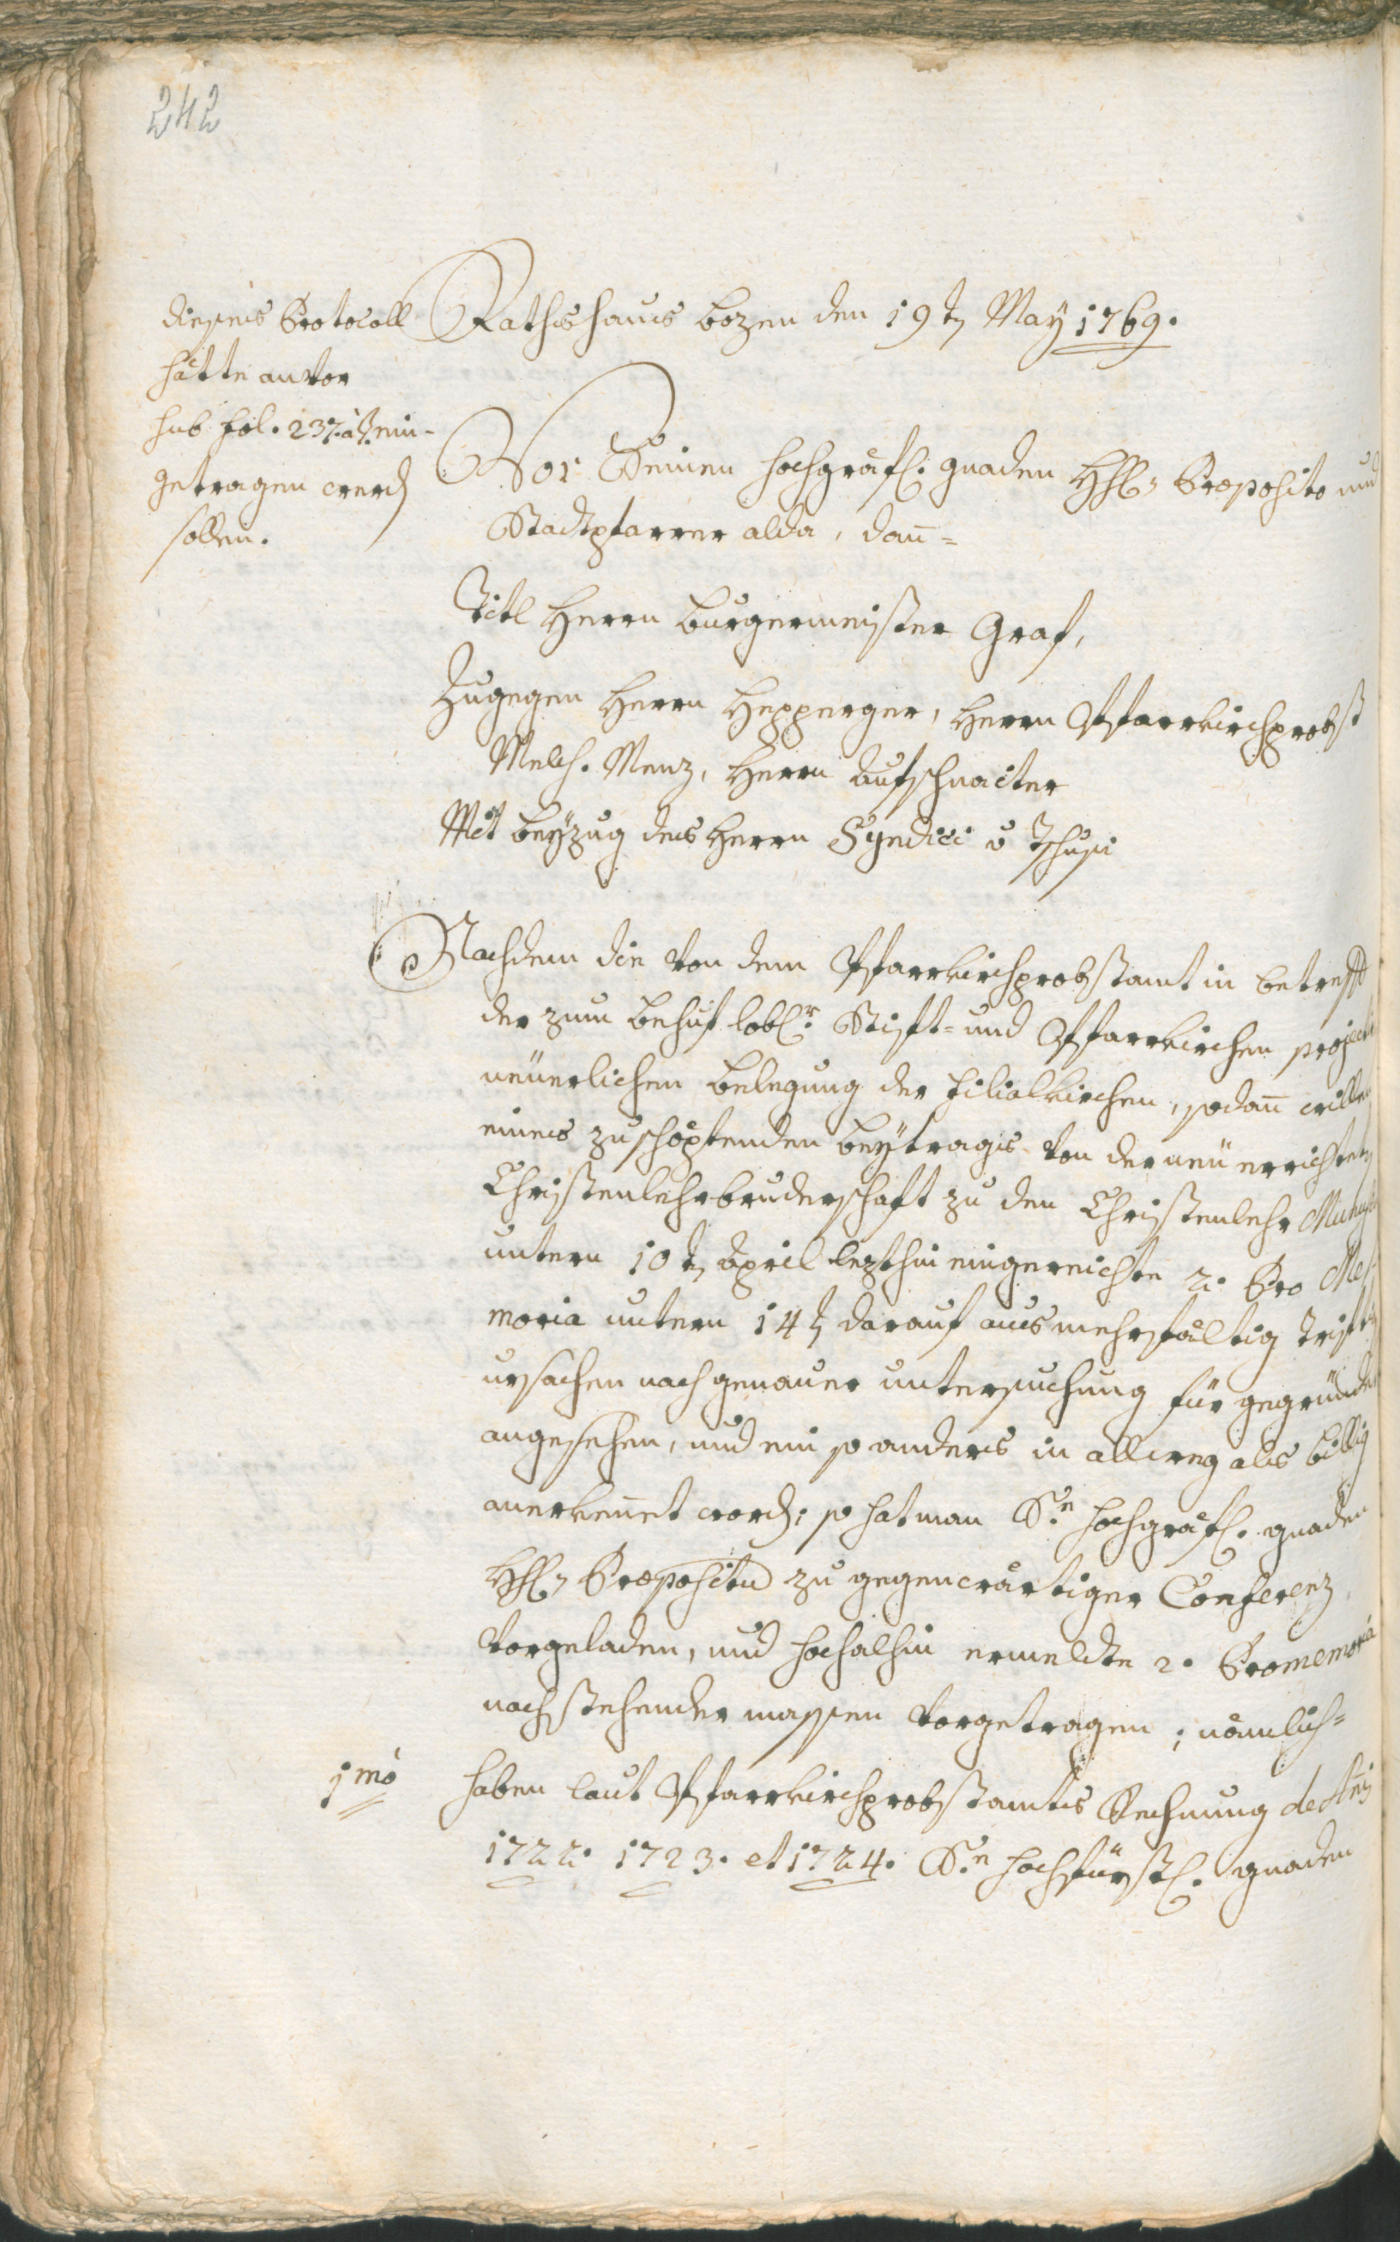 242
Dieseis Protocoll
hätte anvor
sub fol. 237. à t. ein-
getragen werd
sollen.
Rathshaus Bozen den 19t May 1769.
Vor Seinen hochgräfl. gnaden H Præposito und
Stadtpfarrer alda, dan̄=
Titl Herrn Burgermeister Graf,
Zugegen Herrn Hepperger, Herrn Pfarrkirchprobst
Melch. Menz, Herrn Aufschnaiter
Mit beÿzug des Herrn Syndici v Tschusi
Nachdem die von dem Pfarrkirchprobstamt in betreff
der zum behuf lobl.r Stift- und Pfarrkirchen project
neüerlichen belegung der filialkirchen, sodan̄ willen
eines zu schöpfenden beÿtrags von der neü errichten
Christenlehrbruderschaft zu den Christenlehr
untern 10t April lezthin eingereichte 2. Pro Me-
moria untern 14t darauf aus mehrfältig trifti
ursachen nach genauer untersuchung für gegründet
angesehen, und ein so anders in allweg als billig
anerken̄et word; so hat man S.n hochgräfl. gnaden
H Præpositum zu gegenwärtiger Conferenz
vorgeladen, und hochalhin ermeldte 2. Promemoria
nachstehender massen vorgetragen; nämlich=
1mo haben laut Pfarrkirchprobstamts Rechnung de Anis
1722. 1723. et 1724. S.n hochfürstl. gnaden